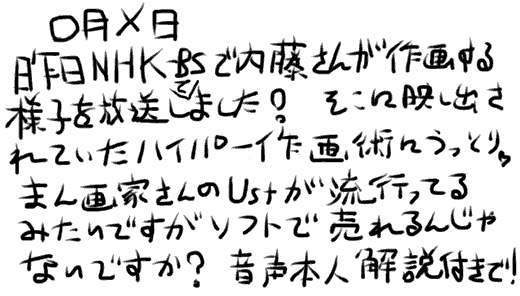 ○月×日
昨日NHK-BSで内藤さんが作画する
様子を放送してましました? そこに映し出さ
れていたハイパー作画術にうっとり。
まん画家さんのUstが流行ってる
みたいですがソフトで売れるんじゃ
ないですか? 音声本人解説付きで!